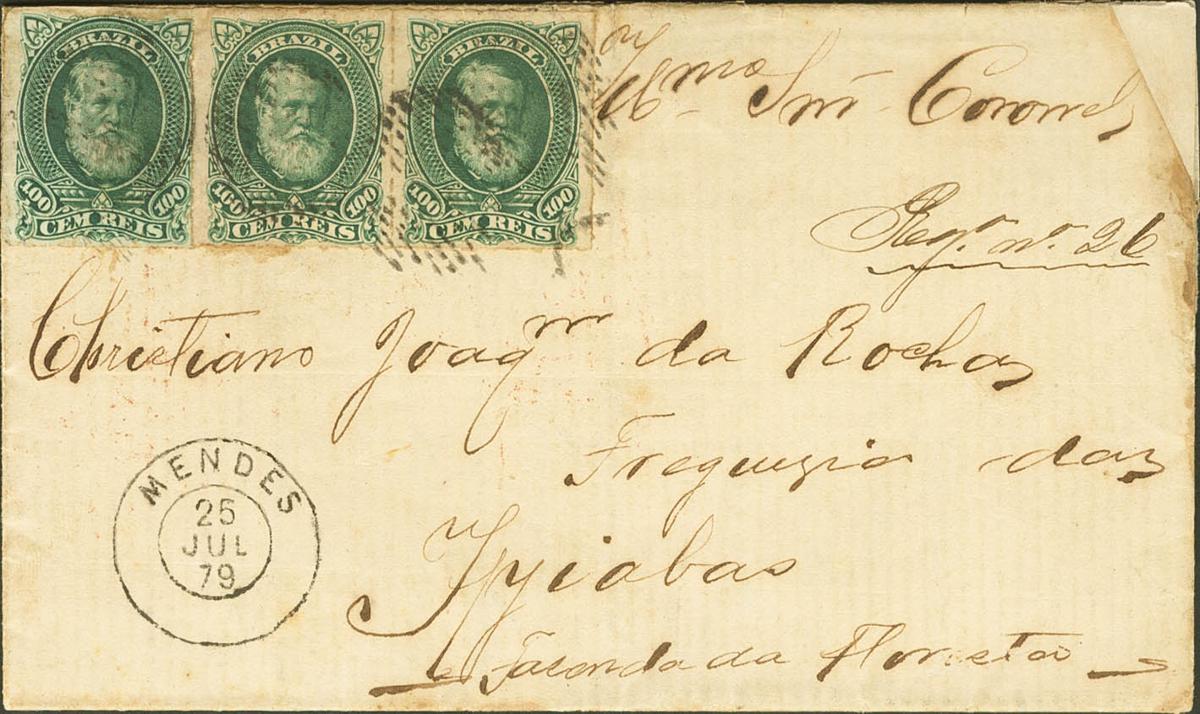 BRAZIL BRAZIL BRAZIL
100 100 100 100 100 100
CEM REIS CEM REIS CEM REIS
Illmo Snr Coronel
Reg. nº 26
Christiano Joaqm da Rocha
Freguezia das
Ypiabas
Fazenda da Floresta
MENDES
25
JUL
79